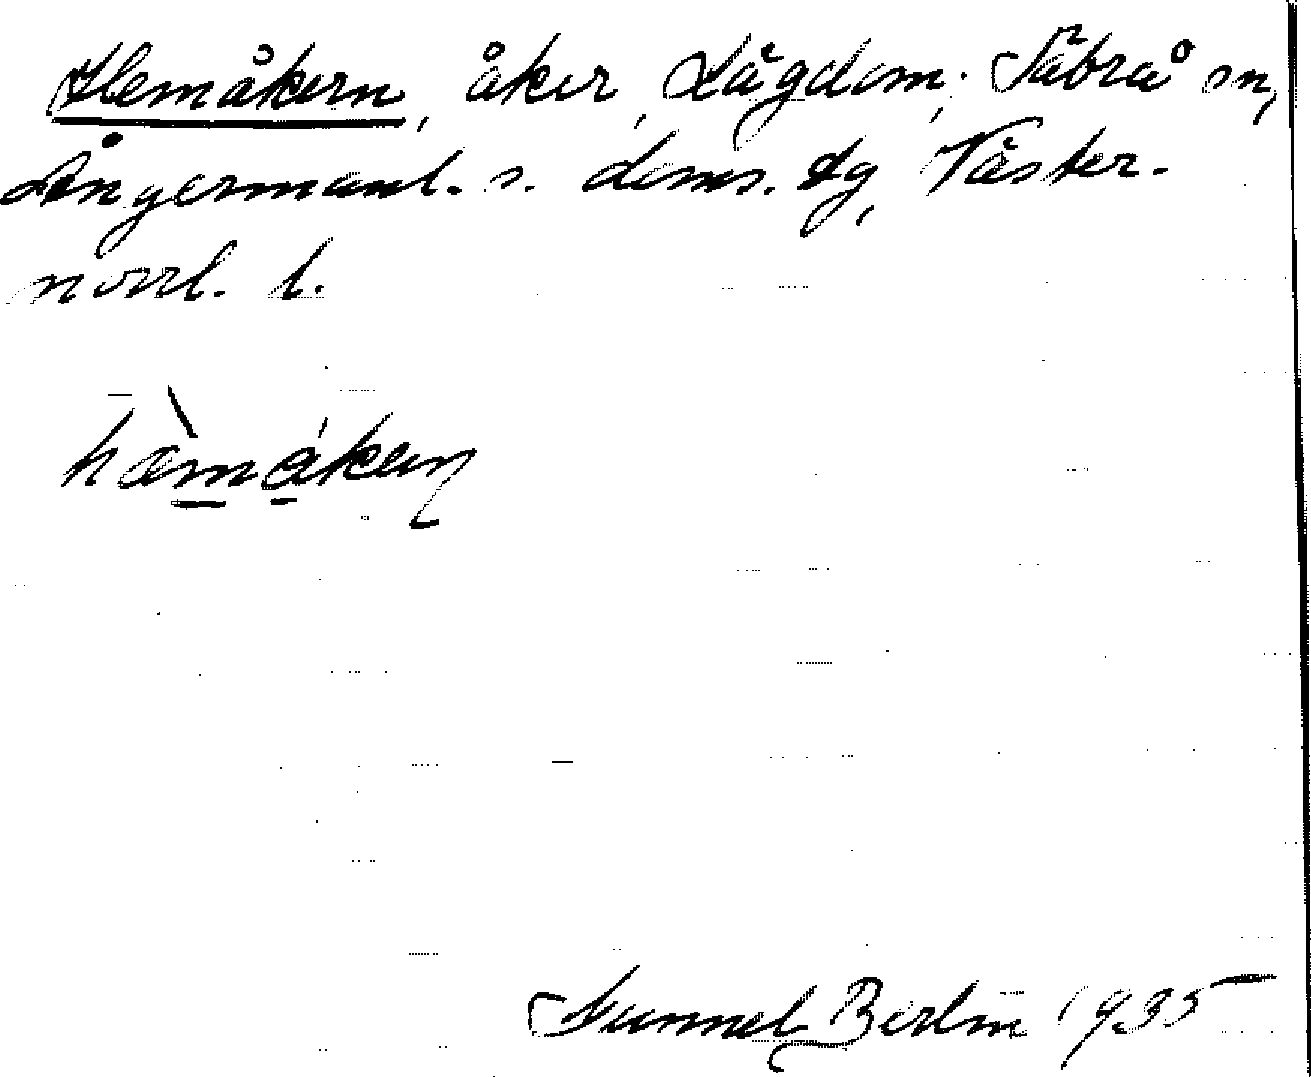 Hemåkern, åker, Lägdom, Säbrå sn,
Ångermanl. s. doms. dg, Väster-
norrl. l.
hæ̀måkeɳ
Gunnel Berlin 1935